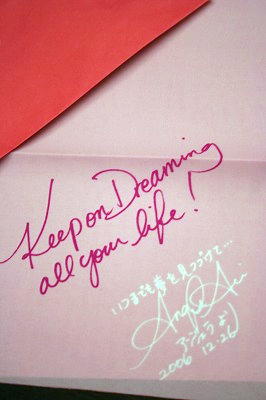 Keep on Dreaming
all your life!
いつまでも夢を見つづけて...
Angela Aki
2006 12.26